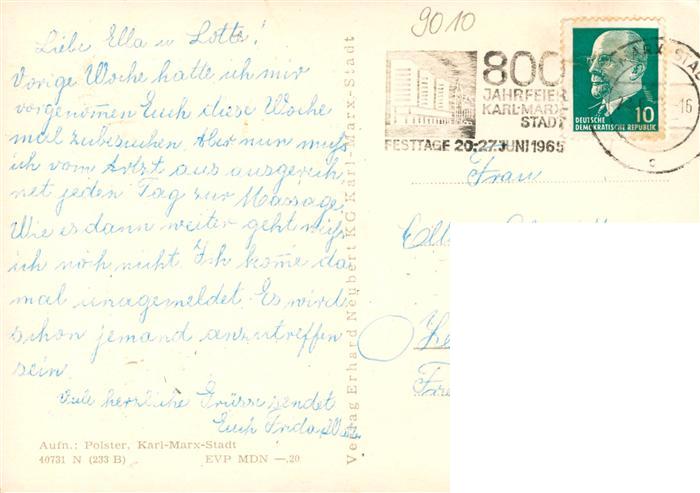 9010
Liebe Ella u Lotte!
Vorige Woche hatte ich mir
vorgenom̄en Euch diese Woche
mal zubesuchen. Aber nun muß
ich vom Artzt aus ausgerech
net jeden Tag zur Massage.
Wie es dann weiter geht weiß
ich noch nicht. Ich kom̄e da
mal unagemeldet. Es wird
schon jemand anzutreffen
sein.
herzliche Grüsse sendet
Euch Frida
Aufn.: Polster, Karl-Marx-Stadt
40731 N (233 B) EVP MDN —.20
Verlag Erhard Neubert KG Karl-Marx-Stadt
800
JAHRFEIER
KARL-MARX-
STADT
FESTTAGE 20.-27. JUNI 1965
10
DEUTSCHE
DEMOKRATISCHE REPUBLIK
MARX-STA
-16
c
Frau